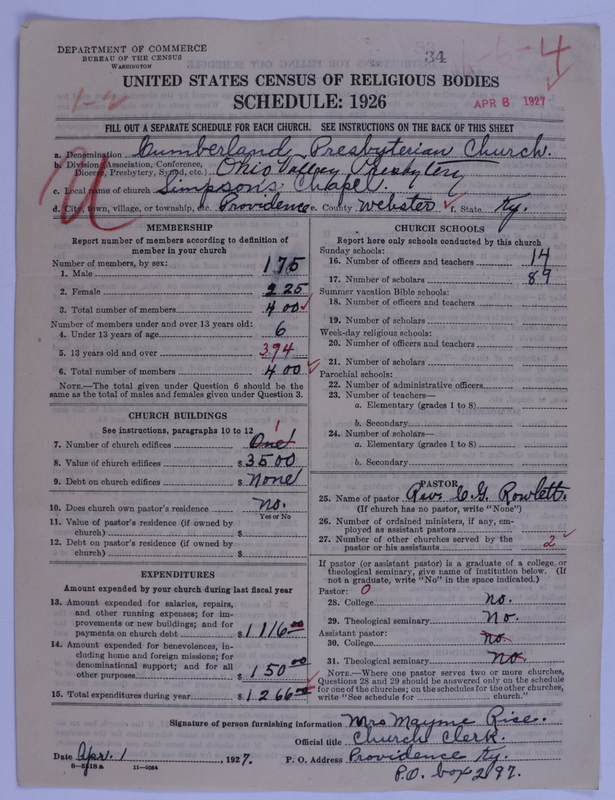 DEPARTMENT OF COMMERCE
BUREAU OF THE CENSUS
WASHINGTON
34
1-6-4
1-2
UNITED STATES CENSUS OF RELIGIOUS BODIES
SCHEDULE: 1926
APR 6 1927
FILL OUT A SEPARATE SCHEDULE FOR EACH CHURCH. SEE INSTRUCTIONS ON THE BACK OF THIS SHEET
a. Denomination Cumberland Presbyterian Church.
b. Division (Association, Conference, Diocese, Presbytery, Synod, etc.) Ohio Valley Presbytery
c. Local name of church Simpson's Chapel.
d. City, town, village, or township, etc. Providence e. County Webster f. State Ky.
MEMBERSHIP
Report number of members according to definition of
member in your church
Number of members, by sex:
1. Male 175
2. Female 225
3. Total number of members 400
Number of members under and over 13 years old:
4. Under 13 years of age 6
5. 13 years old and over 394
6. Total number of members 400
NOTE.—The total given under Question 6 should be the
same as the total of males and females given under Question 3.
CHURCH BUILDINGS
See instructions, paragraphs 10 to 12
7. Number of church edifices One 1
8. Value of church edifices $ 3500
9. Debt on church edifices $ None
10. Does church own pastor's residence no.
Yes or No
11. Value of pastor's residence (if owned by
church) $
12. Debt on pastor's residence (if owned by
church) $
EXPENDITURES
Amount expended by your church during last fiscal year
13. Amount expended for salaries, repairs,
and other running expenses; for im-
provements or new buildings; and for
payments on church debt $ 1116 00
14. Amount expended for benevolences, in-
cluding home and foreign missions; for
denominational support; and for all
other purposes $ 150 00
15. Total expenditures during year $ 1266 00
CHURCH SCHOOLS
Report here only schools conducted by this church
Sunday schools:
16. Number of officers and teachers 14
17. Number of scholars 89
Summer vacation Bible schools:
18. Number of officers and teachers
19. Number of scholars
Week-day religious schools:
20. Number of officers and teachers
21. Number of scholars
Parochial schools:
22. Number of administrative officers
23. Number of teachers—
a. Elementary (grades 1 to 8)
b. Secondary
24. Number of scholars—
a. Elementary (grades 1 to 8)
b. Secondary
PASTOR
25. Name of pastor Rev. C.G. Rowlett.
(If church has no pastor, write "None")
26. Number of ordained ministers, if any, em-
ployed as assistant pastors
27. Number of other churches served by the
pastor or his assistants 2
If pastor (or assistant pastor) is a graduate of a college or
theological seminary, give name of institution below. (If
not a graduate, write "No" in the space indicated.)
Pastor: 0
28. College no.
29. Theological seminary No.
Assistant pastor:
30. College no
31. Theological seminary no
NOTE.—Where one pastor serves two or more churches,
Questions 28 and 29 should be answered only on the schedule
for one of the churches; on the schedules for the other churches,
write "See schedule for church."
Signature of person furnishing information Mrs Mayme Rice.
Official title Church Clerk.
Date Apr. 1, 1927. P. O. Address Providence Ky.
8-5518a 11-9084
P.O. box 297.